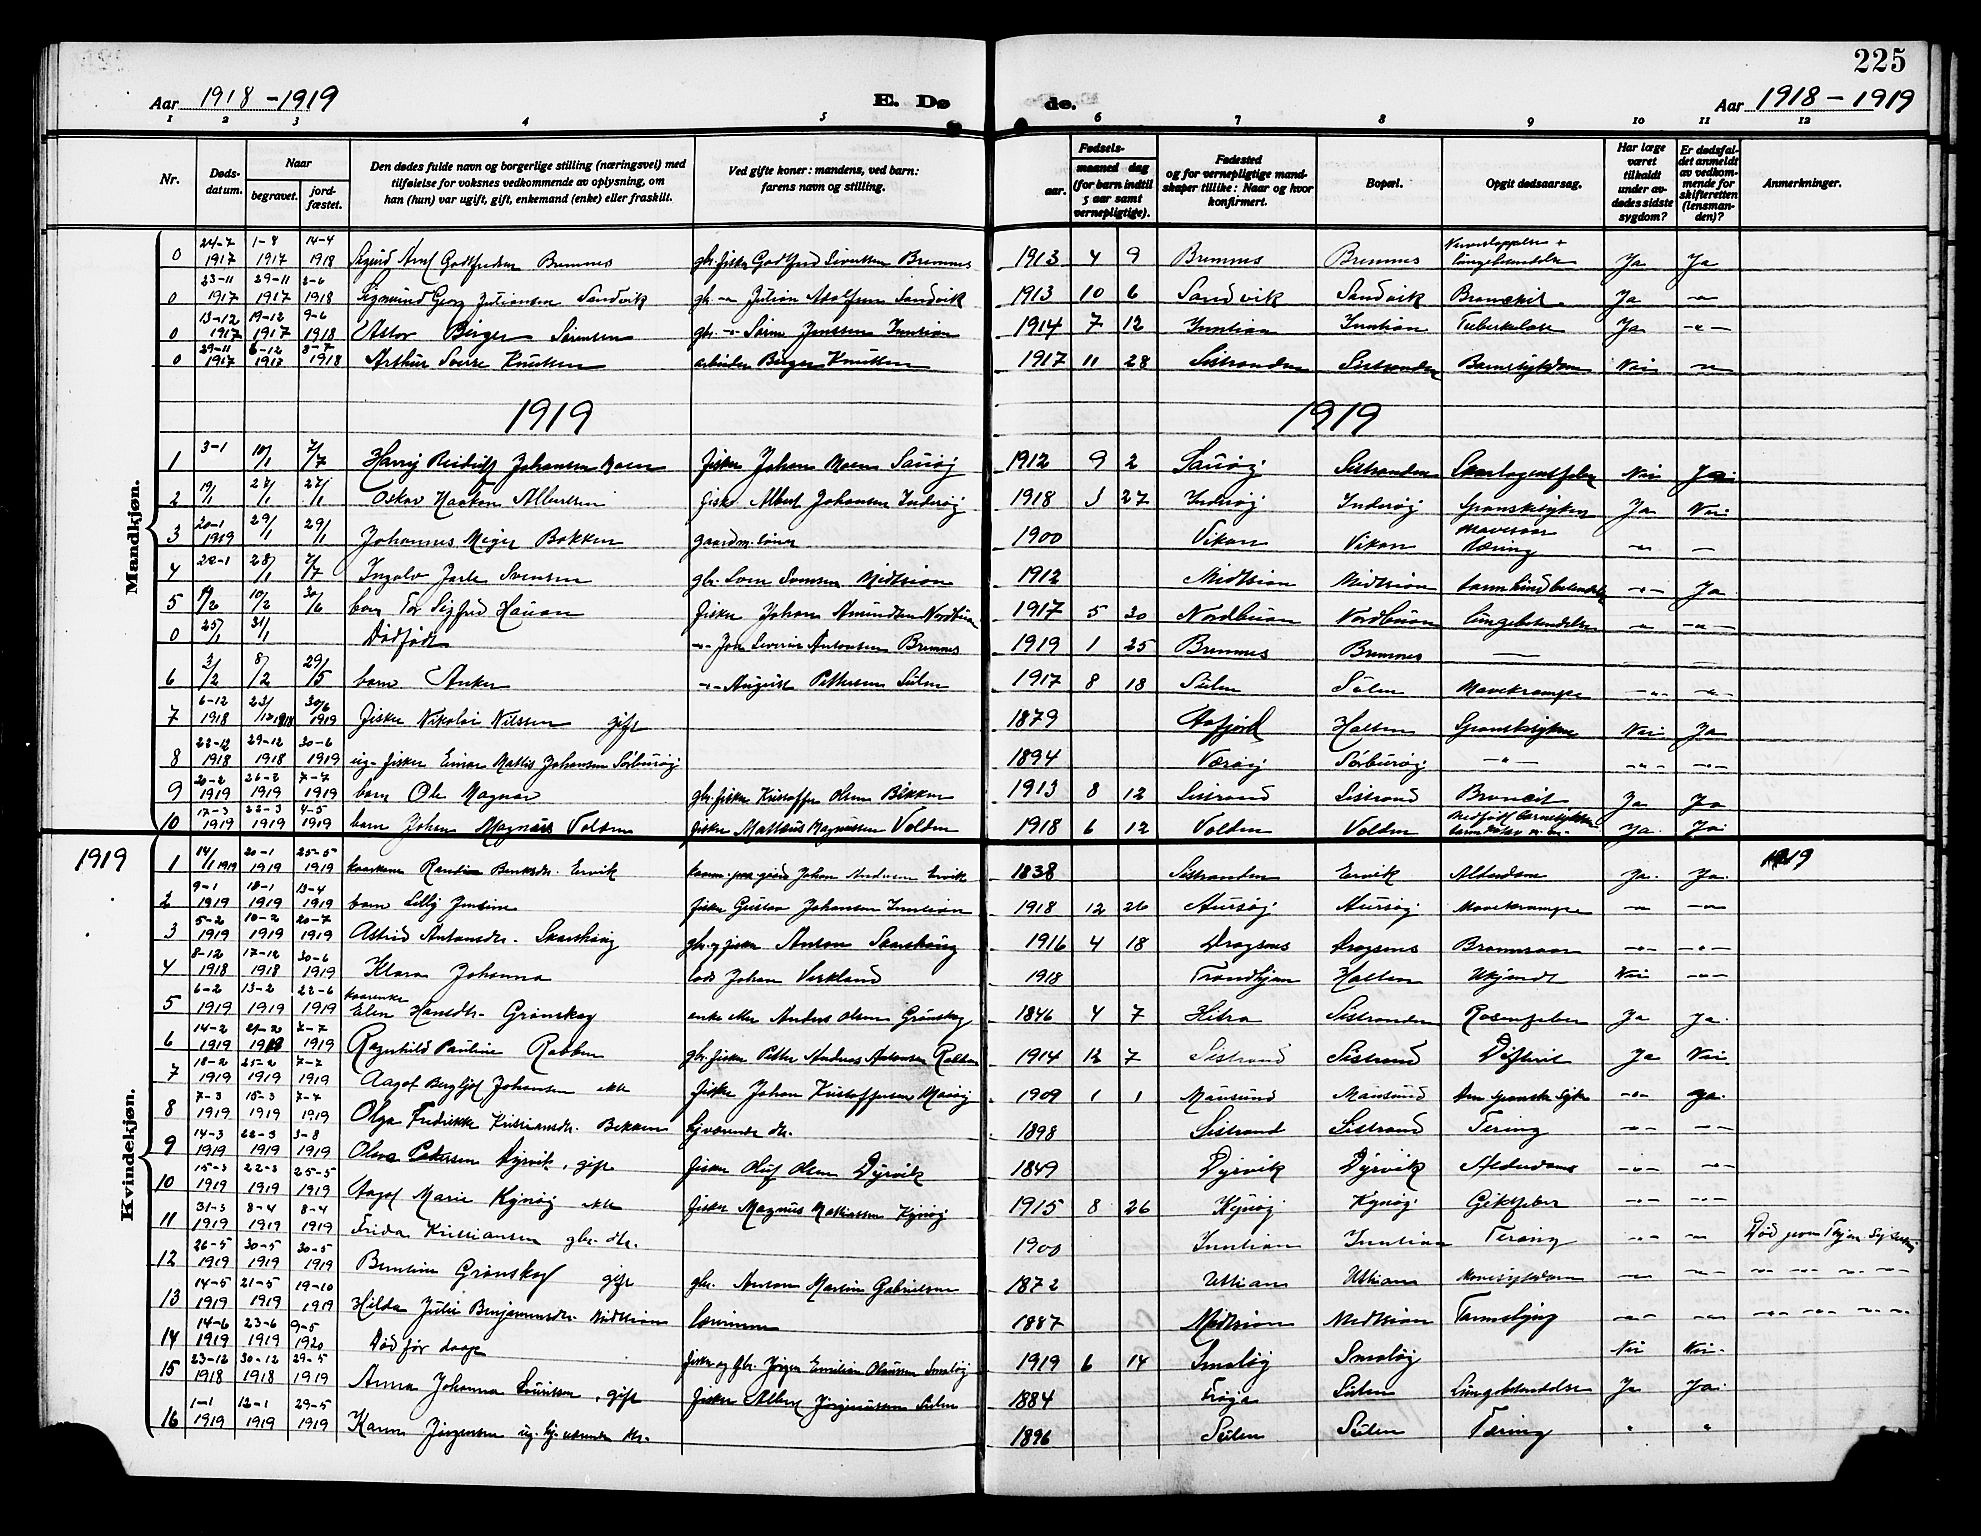 225
Aar 1918-1919 E. Dø de. Aar 1918-1919
1 2 3 4 5 6 7 8 9 10 11 12
Nr. Døds-datum. Naar begravet. jord-fæstet. Den dødes fulde navn og borgerlige stilling (næringsvei) med tilføielse for voksnes vedkommende av oplysning, om han (hun) var ugift, gift, enkemand (enke) eller fraskilt. Ved gifte koner: mandens, ved barn: farens navn og stilling. Fødsels- aar. maaned dag (for barn indtil 5 aar samt vernepligtige). Fødested og for vernepligtige mandskaper tillike: Naar og hvor konfirmert. Bopæl. Opgit dødsaarsag. Har læge været tilkaldt under avdødes sidste sygdom? Er dødsfaldet anmeldt av vedkommende for skifteretten (lensmanden)? Anmerkninger.
Mandkjøn.
0 24-7 1917 1-8 1917 14-4 1918 Sigurd Godtfredsen Bremnes gbr. fisker Godtfred Sivertsen Bremnes 1913 4 9 Bremnes Bremnes Ja Ja
0 23-11 1917 29-11 1917 2-6 1918 Sigmund Georg Juliansen Sandvik gbr. -"- Julian Adolfsen Sandvik 1913 10 6 Sandvik Sandvik Ja -"-
0 13-12 1917 19-12 1917 9-6 1918 Astor Birger Sørensen gbr. -"- Søren Jenssen Inntian 1914 7 12 Inntian Inntian Tuberkulose Ja -"-
0 29-11 1917 6-12 1917 1918 Arthur Sverre Knutsen arbeider Birger Knutsen 1917 11 28 Sistranden Sistranden Barnesykdom Nei -"-
1919 1919
1 3-1 10/1 7/7 Harry Johansen Moen fisker Johan Moen Sauøy 1912 9 2 Sauøy Sistranden Skarlagensfeber Nei
2 19/1 27/1 27/1 Oskar Haakon Albertsen fisker Albert Johansen Inderøy 1918 3 27 Inderøy Inderøy Spanskesyken Ja Nei
3 20-1 1919 29/1 29/1 Johannes Meyer Bekken 1900 Vikan Vikan -"- -
4 22-1 28/1 7/7 Ingolv Jarle Svensen gbr. Sven Svensen Midtsian 1912 Midtsian Midtsian -"- Ja
5 10/2 30/6 barn Tor Sigfred Hauan fisker Johan Amundsen Nordbuan 1917 5 30 Nordbuan Nordbuan Lungebetændelse -"- -"-
0 25/1 31/1 Dødfødt -"- Joh. Severin Antonsen Bremnes 1919 1 25 Bremnes Bremnes — -"- -"-
6 3/2 8/2 29/5 barn Anker -"- August Pettersen Sulen 1917 8 18 Sulen Sulen Mavekrampe -"- -"-
7 6-12 1918 23/12 1918 30/6 1919 fisker Nikolai Nilssen gift 1879 Aafjord Halten Spanskesyken Nei Ja
8 22-12 1918 29-12 1918 30-6 1919 ug. fisker Einar Mattis Johansen Sørburøy 1894 Værøy Sørburøy -"- -"- -"-
9 20-2 1919 26-2 1919 7-7 1919 barn Ole Magnar gbr. fisker Kristoffer Olsen Bekken 1913 8 12 Sistrand Sistrand Ja Ja
10 17-3 1919 22-3 1919 4-5 1919 barn Johan Magnus Volden fisker Matteus Magnussen Volden 1918 6 12 Volden Volden Ja Ja
1919 1919
Kvindekjøn.
1 14/1 1919 20-1 1919 25-5 1919 Ervik Johan Andersen Ervik 1838 Sistranden Ervik Alderdom Ja. Ja.
2 9-1 1919 18-1 1919 13-4 1919 barn Lilly Jensine fisker Gustav Johansen Inntian 1918 12 26 Aursøy Aursøy Mavekrampe -"- -"-
3 5-2 1919 10-2 1919 20-7 1919 Astrid Antonsdtr. Skarshaug gbr. og fisker Anton Skarshaug 1916 4 18 Dragsnes Dragsnes -"- -"-
4 8-12 1918 17-12 1918 30-6 1919 Klara Johanna lods Johan Verkland 1918 Trondhjem Halten Ukjendt Nei -"-
5 6-2 1919 13-2 1919 22-6 1919 kaarenke Elen Hansdtr. Grønskag enke efter Anders Olsen Grønskag 1846 4 7 Hitra Sistranden Rosenfeber Ja Ja.
6 14-2 1919 21-2 1919 7-7 1919 Ragnhild Pauline Rabben gbr. fisker Petter Andreas Antonsen Rabben 1914 12 7 Sistrand Sistrand Difterit Ja Nei
7 18-2 1919 25-2 1919 7-7 1919 Aagot Bergljot Johansen fisker Johan Kristoffersen 1909 1 1 Mausund Mausund Den spanske syke -"- Ja.
8 7-3 1919 15-3 1919 7-7 1919 Olga Fredrikke Kristiansdtr. Bekken hjværende dtr. 1898 Sistrand Sistrand Tæring -"- -"-
9 14-3 1919 22-3 1919 3-8 1919 Olava Pedersen Dyrvik, gift fisker Oluf Olsen Dyrvik 1849 Dyrvik Dyrvik Alderdoms -"- -"-
10 15-3 1919 22-3 1919 25-5 1919 Aagot Marie Kynøy fisker Magnus Mathiassen Kynøy 1915 8 26 Kynøy Kynøy Giktfeber -"- -"-
11 31-3 1919 8-4 1919 8-4 1919 Frida Kristiansen gbr. dtr. 1900 Inntian Inntian Tæring -"- -"- Død paa
12 26-5 1919 30-5 1919 30-5 1919 Berntine Grønskag gift gbr. Anton Martin Gabrielsen 1872 Uttian Uttian Mavesykdom -"- -"- -"- -"- -"- -"-
13 14-5 1919 21-5 1919 19-10 1919 Hilda Julie Benjaminsdtr. Midtsian Lærerinne 1887 Midtsian Midtsian -"- -"- -"- -"- -"- -"-
14 14-6 1919 23-6 1919 9-5 1920 Død før daap fisker og gbr. Jørgen Emilian Olaussen Smaløy 1919 6 14 Smaløy Smaløy Nei Nei
15 23-12 1918 30-12 1918 29-5 1919 Anna Johanna Lauritsen, gift fisker Albert Jørginussen Sulen 1884 Frøya Sulen Lungebetændelse Ja Ja
16 1-1 1919 12-1 1919 29-5 1919 Karen Jørgensen ug. 1896 Sulen Sulen Tæring " "